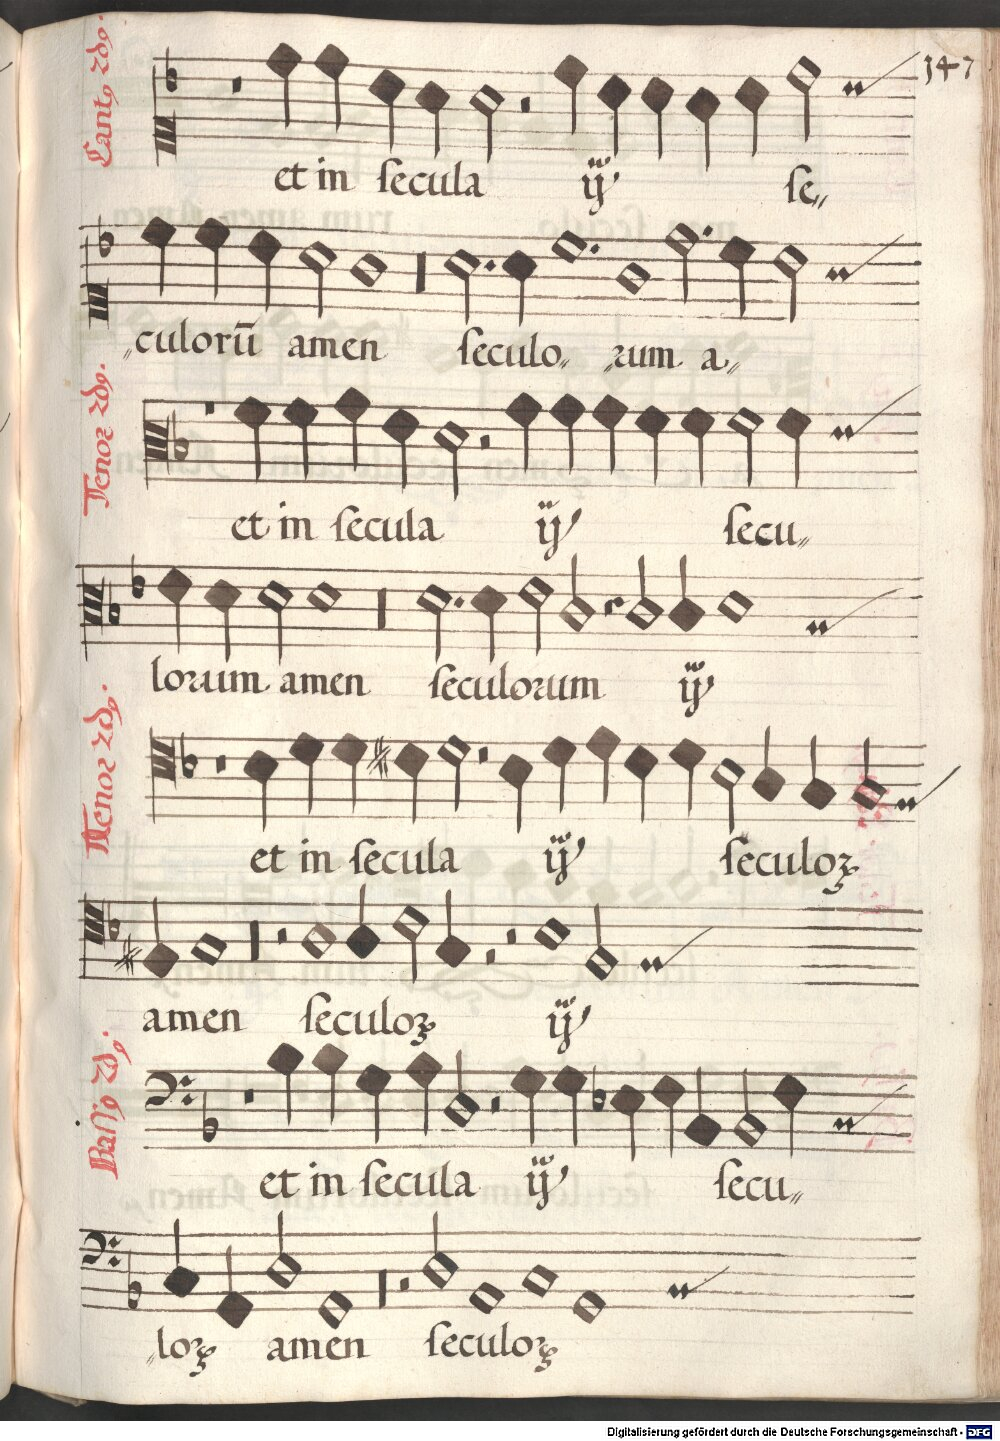 147
Cantꝰ 2dꝰ.
et in secula ijͥ se„
„culorū amen seculo„ „rum a„
Tenor 2dꝰ.
et in secula ijͥ secu„
lorum amen seculorum ijͥ
Tenor 2dꝰ.
et in secula ijͥ seculoꝝ
amen seculoꝝ ijͥ
Bassꝰ 2dꝰ.
et in secula ijͥ secu„
„loꝝ amen seculoꝝ
Digitalisierung gefördert durch die Deutsche Forschungsgemeinschaft - DFG